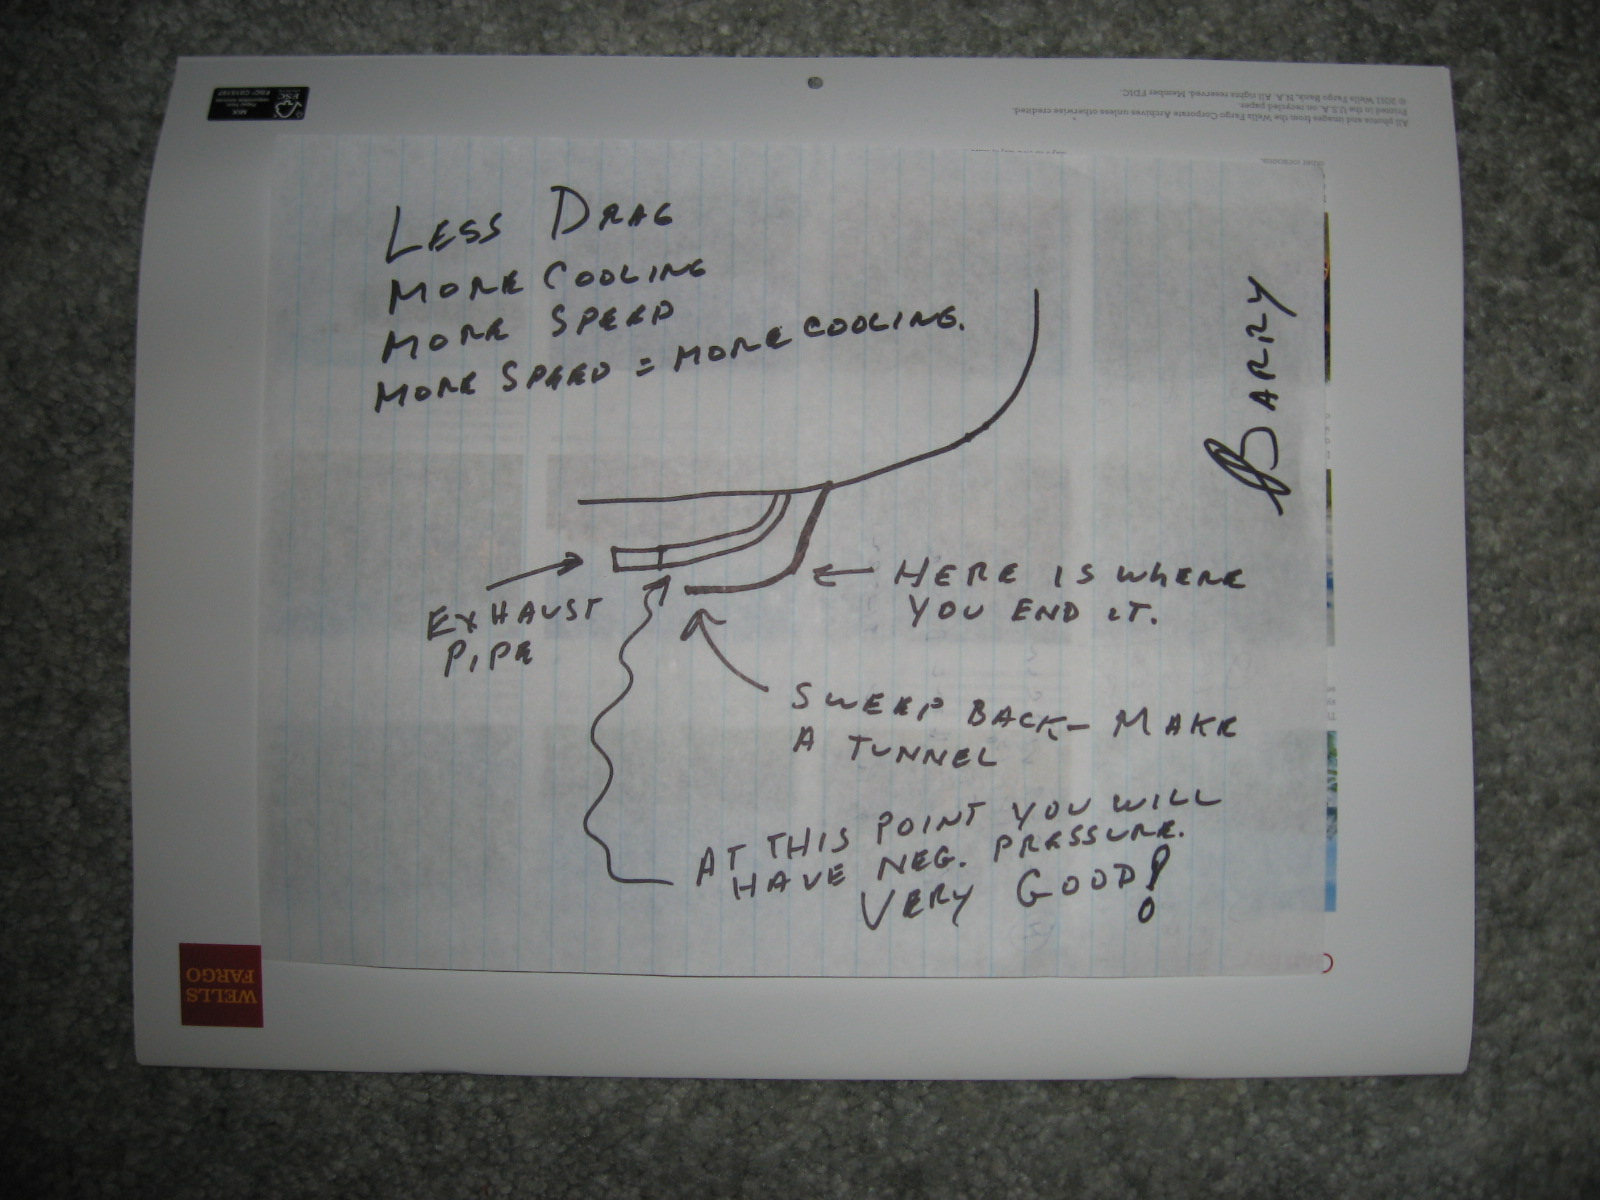 LESS DRAG
MORE COOLING
MORE SPEED
MORE SPEED = MORE COOLING.
BARRY
EXHAUST
PIPE
HERE IS WHERE
YOU END IT.
SWEEP BACK - MAKE
A TUNNEL
AT THIS POINT YOU WILL
HAVE NEG. PRESSURE.
VERY GOOD!
WELLS
FARGO
All photos and images from the Wells Fargo Corporate Archives unless otherwise credited.
Printed in the U.S.A. on recycled paper.
© 2011 Wells Fargo Bank, N.A. All rights reserved. Member FDIC.
MIX
FSC